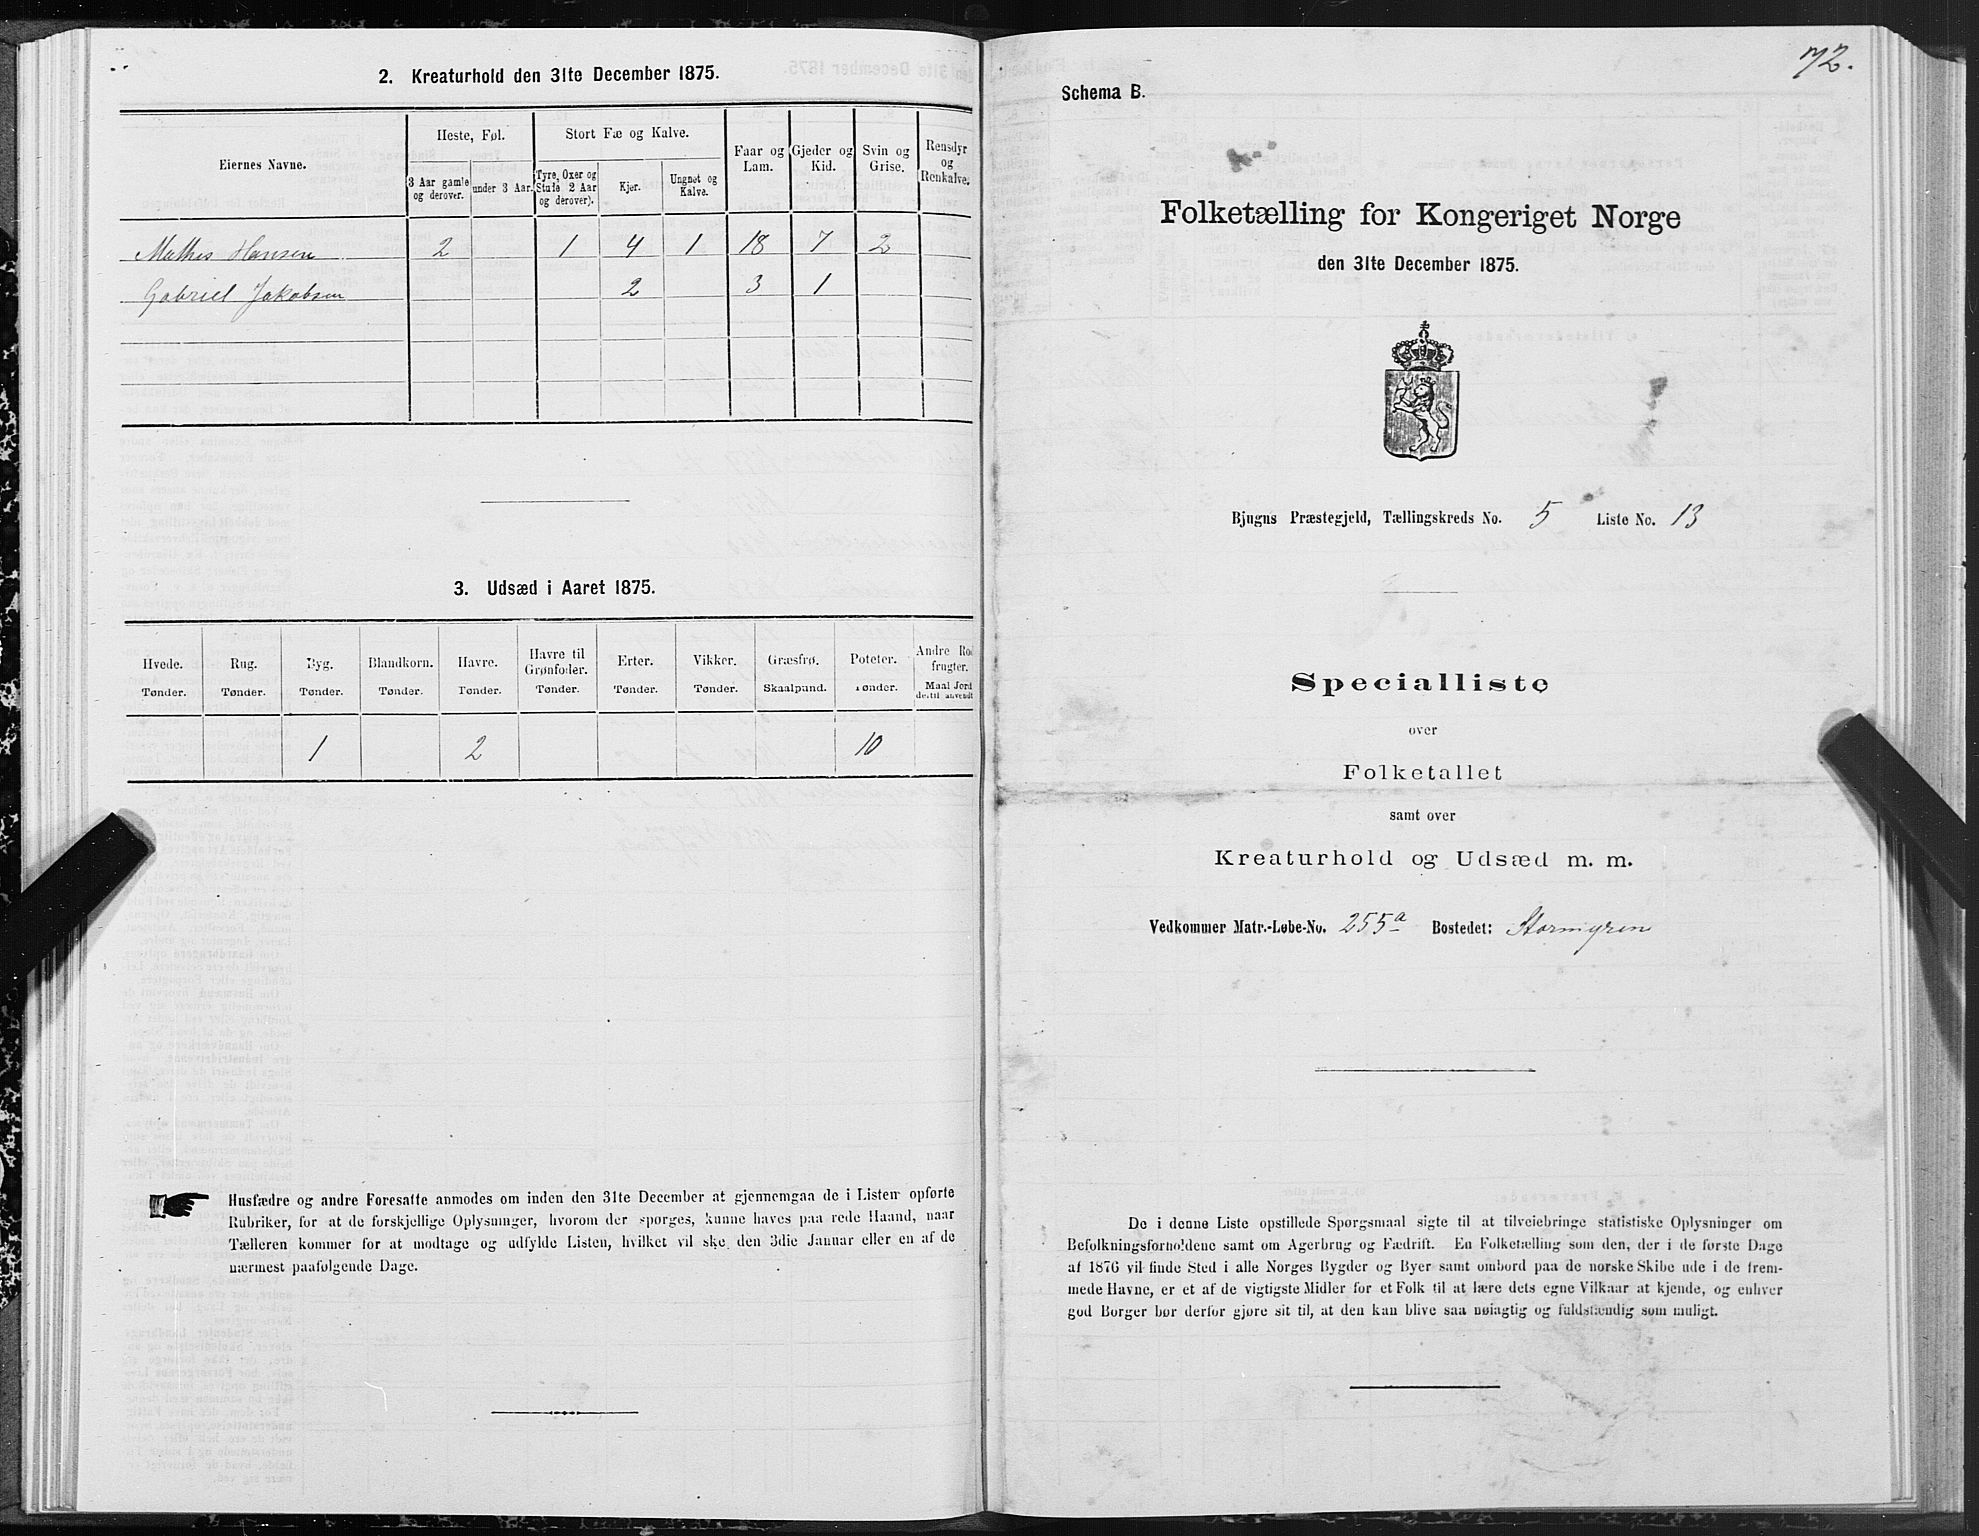 2. Kreaturhold den 31te December 1875.
Eiernes Navne.
Heste, Føl.
Stort Fæ og Kalve.
Faar og Lam.
Gjeder og Kid.
Svin og Grise.
Rensdyr og Renkalve.
3 Aar gamle og derover.
under 3 Aar.
Tyre, Oxer og Stude 2 Aar og derover).
Kjør.
Ungnøt og Kalve.
Mathis Hansen 2 1 4 1 18 7 2
Gabriel Jakobsen 2 3 1
3. Udsæd i Aaret 1875.
Hvede. Rug. Byg. Blandkorn. Havre. Havre til Grønfoder. Erter. Vikker. Græsfrø. Poteter. Andre Rodfrugter.
Tønder. Tønder. Tønder. Tønder. Tønder. Tønder. Tønder. Tønder. Skaalpund. Tønder. Maal Jord dertil anvendt
1 2 10
Husfædre og andre Foresatte anmodes om inden den 31te December at gjennemgaa de i Listen opførte
Rubriker, for at de forskjellige Oplysninger, hvorom der spørges, kunne haves paa rede Haand, naar
Tælleren kommer for at modtage og udfylde Listen, hvilket vil ske den 3die Januar eller en af de
nærmest paafølgende Dage.
72.
Schema B.
Folketælling for Kongeriget Norge
den 31te December 1875.
Bjugns Præstegjeld, Tællingskreds No. 5 Liste No. 13
Specialliste
over
Folketallet
samt over
Kreaturhold og Udsæd m. m.
Vedkommer Matr.-Løbe-No. 255a Bostedet: Stormyren
De i denne Liste opstillede Spørgsmaal sigte til at tilveiebringe statistiske Oplysninger om
Befolkningsforholdene samt om Agerbrug og Fædrift. En Folketælling som den, der i de første Dage
af 1876 vil finde Sted i alle Norges Bygder og Byer samt ombord paa de norske Skibe ude i de frem-
mede Havne, er et af de vigtigste Midler for et Folk til at lære dets egne Vilkaar at kjende, og enhver
god Borger bør derfor gjøre sit til, at den kan blive saa nøiagtig og fuldstændig som muligt.